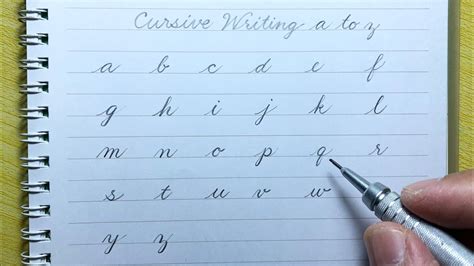 Cursive Writing a to z
a b c d e f
g h i j k l
m n o p q r
s t u v w
y z